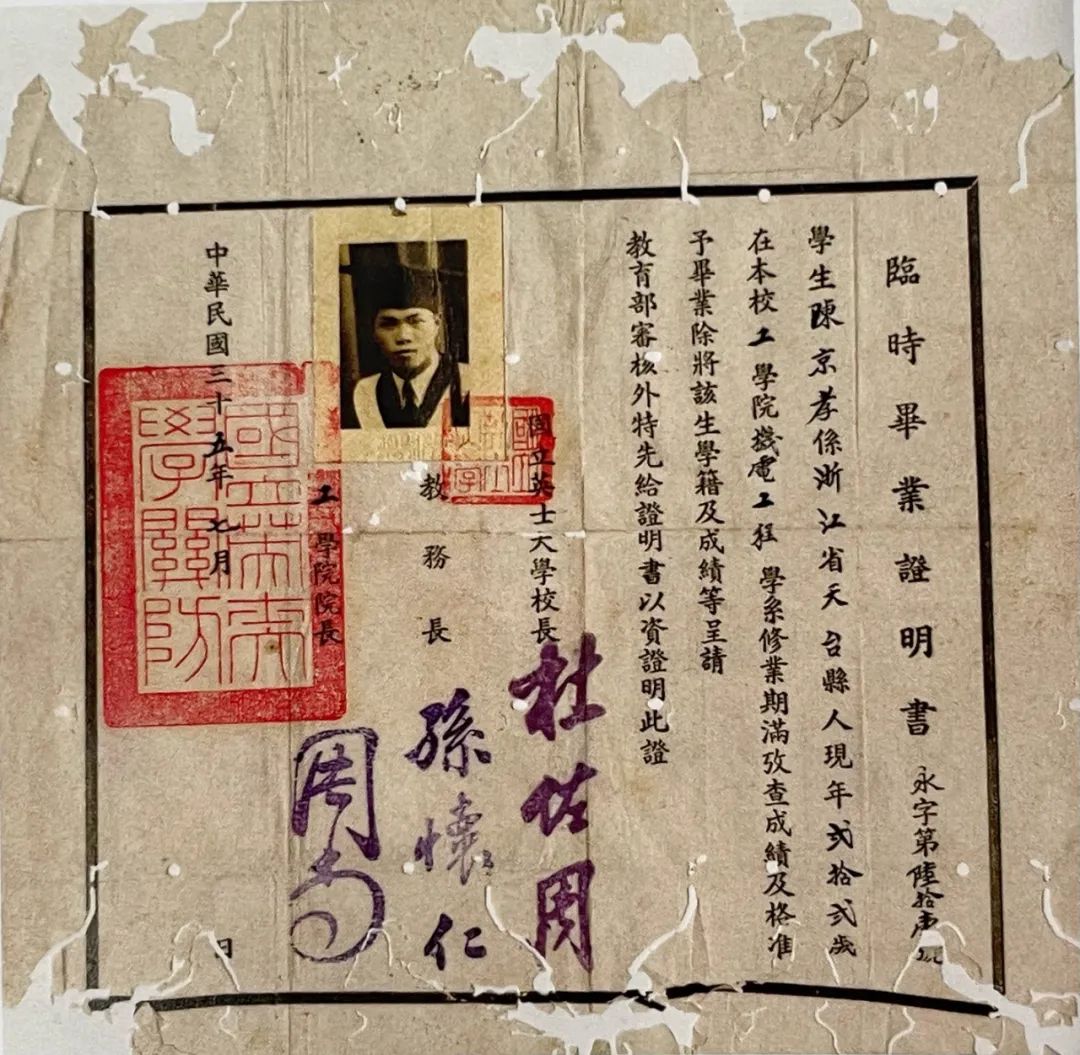 臨時畢業證明書 永字第陸拾壹號
學生陳京孝係浙江省天台縣人現年貳拾貳歲
在本校工學院機電工程學系修業期滿攷查成績及格准
予畢業除將該生學籍及成績等呈請
教育部審核外特先給證明書以資證明此證
國立英士大學校長杜佐周
教務長孫懷仁
工學院院長周尚
中華民國三十五年七月 日
國立英士大學關防